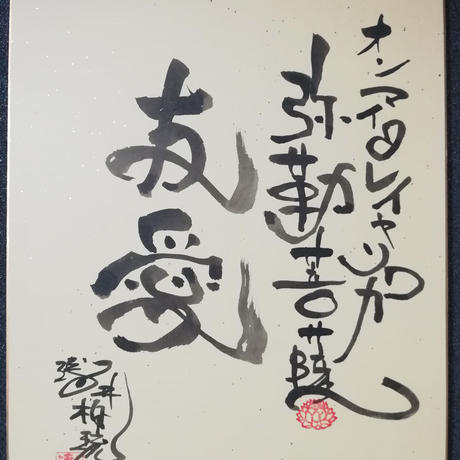 オンマイタレイヤソワカ
弥勒菩薩
友愛